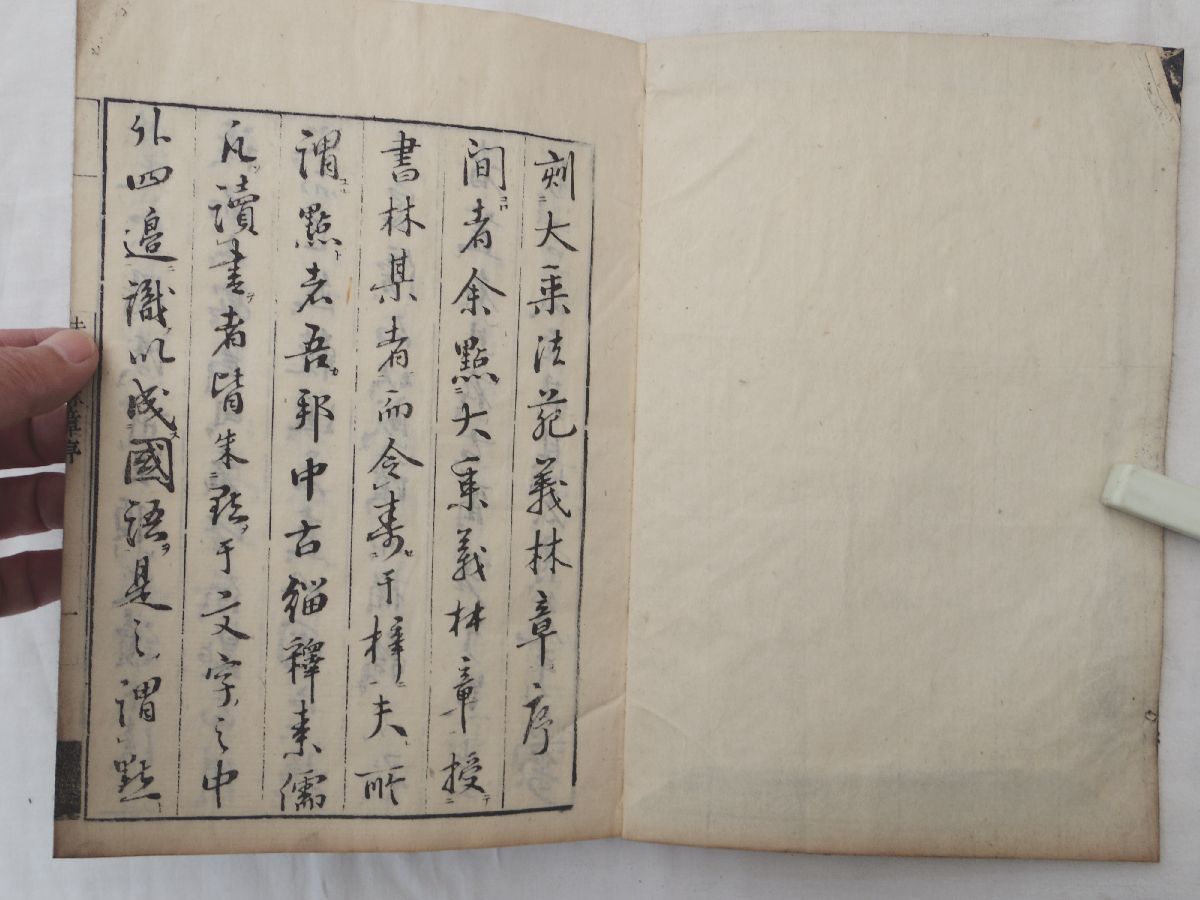 刻大乗法苑義林章序
間者余點大乗義林章授
書林某者而令壽于梓夫所
謂點者吾邦中古緇釋素儒
凡讀書者皆朱點于文字之中
外四邊識以成國語是之謂點
章序